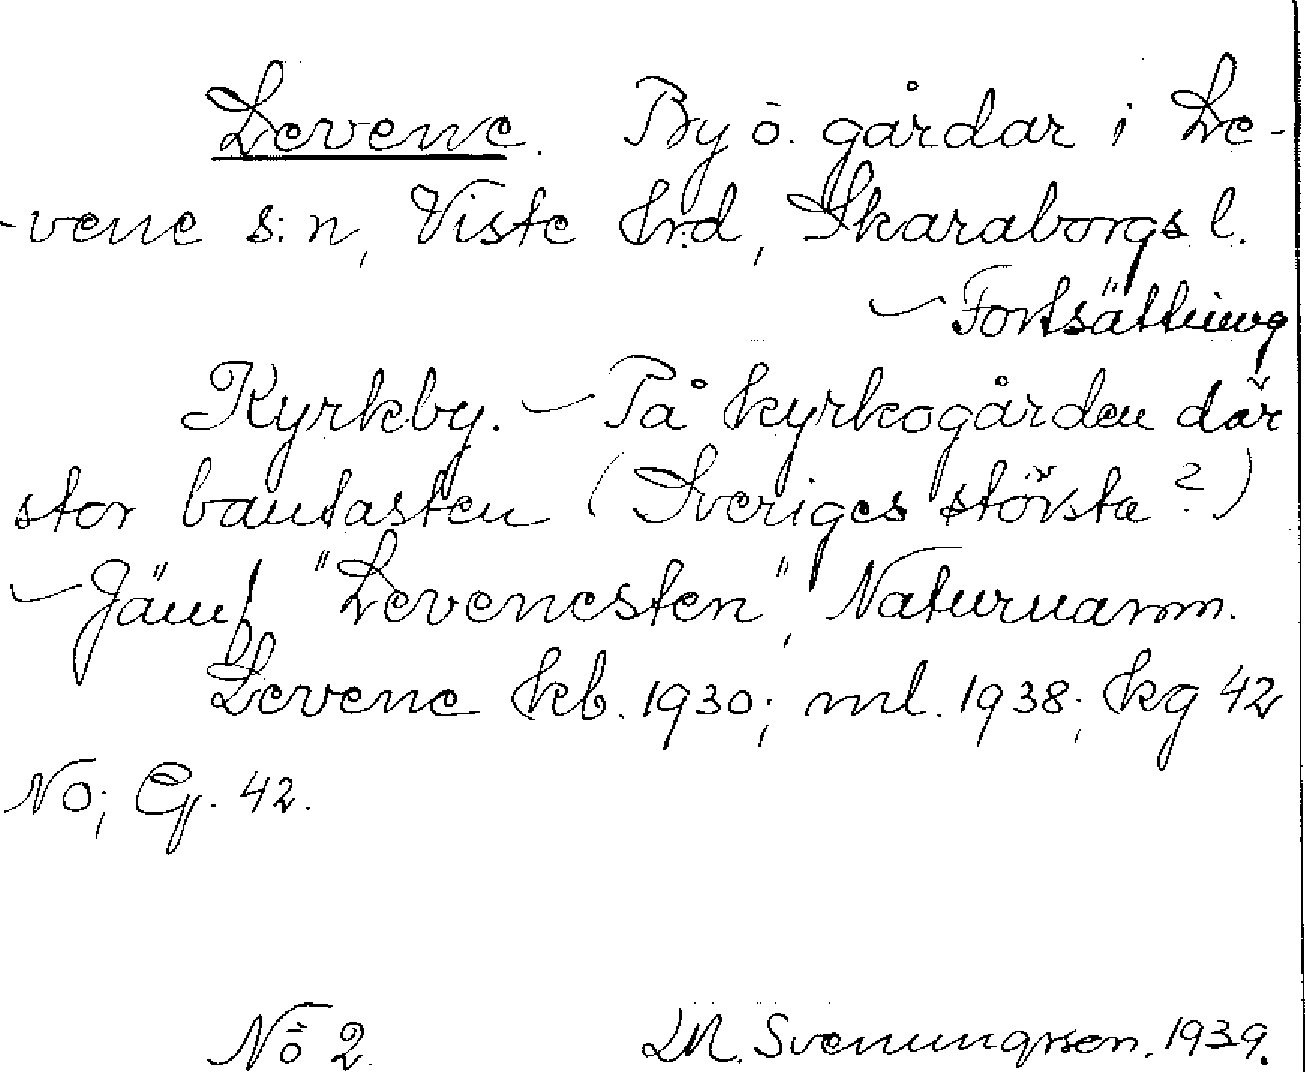 Levene. By o. gårdar i Le-
-vene s:n, Viste hrd, Skaraborgs l.
— Fortsättning
Kyrkby. — På kyrkogården där
stor bautasten (Sveriges största?)
— Jämf "Levenesten", Naturnamn.
Levene kb. 1930; ml. 1938; kg 42
No; 42.
No 2. M. Svenungsson. 1939.